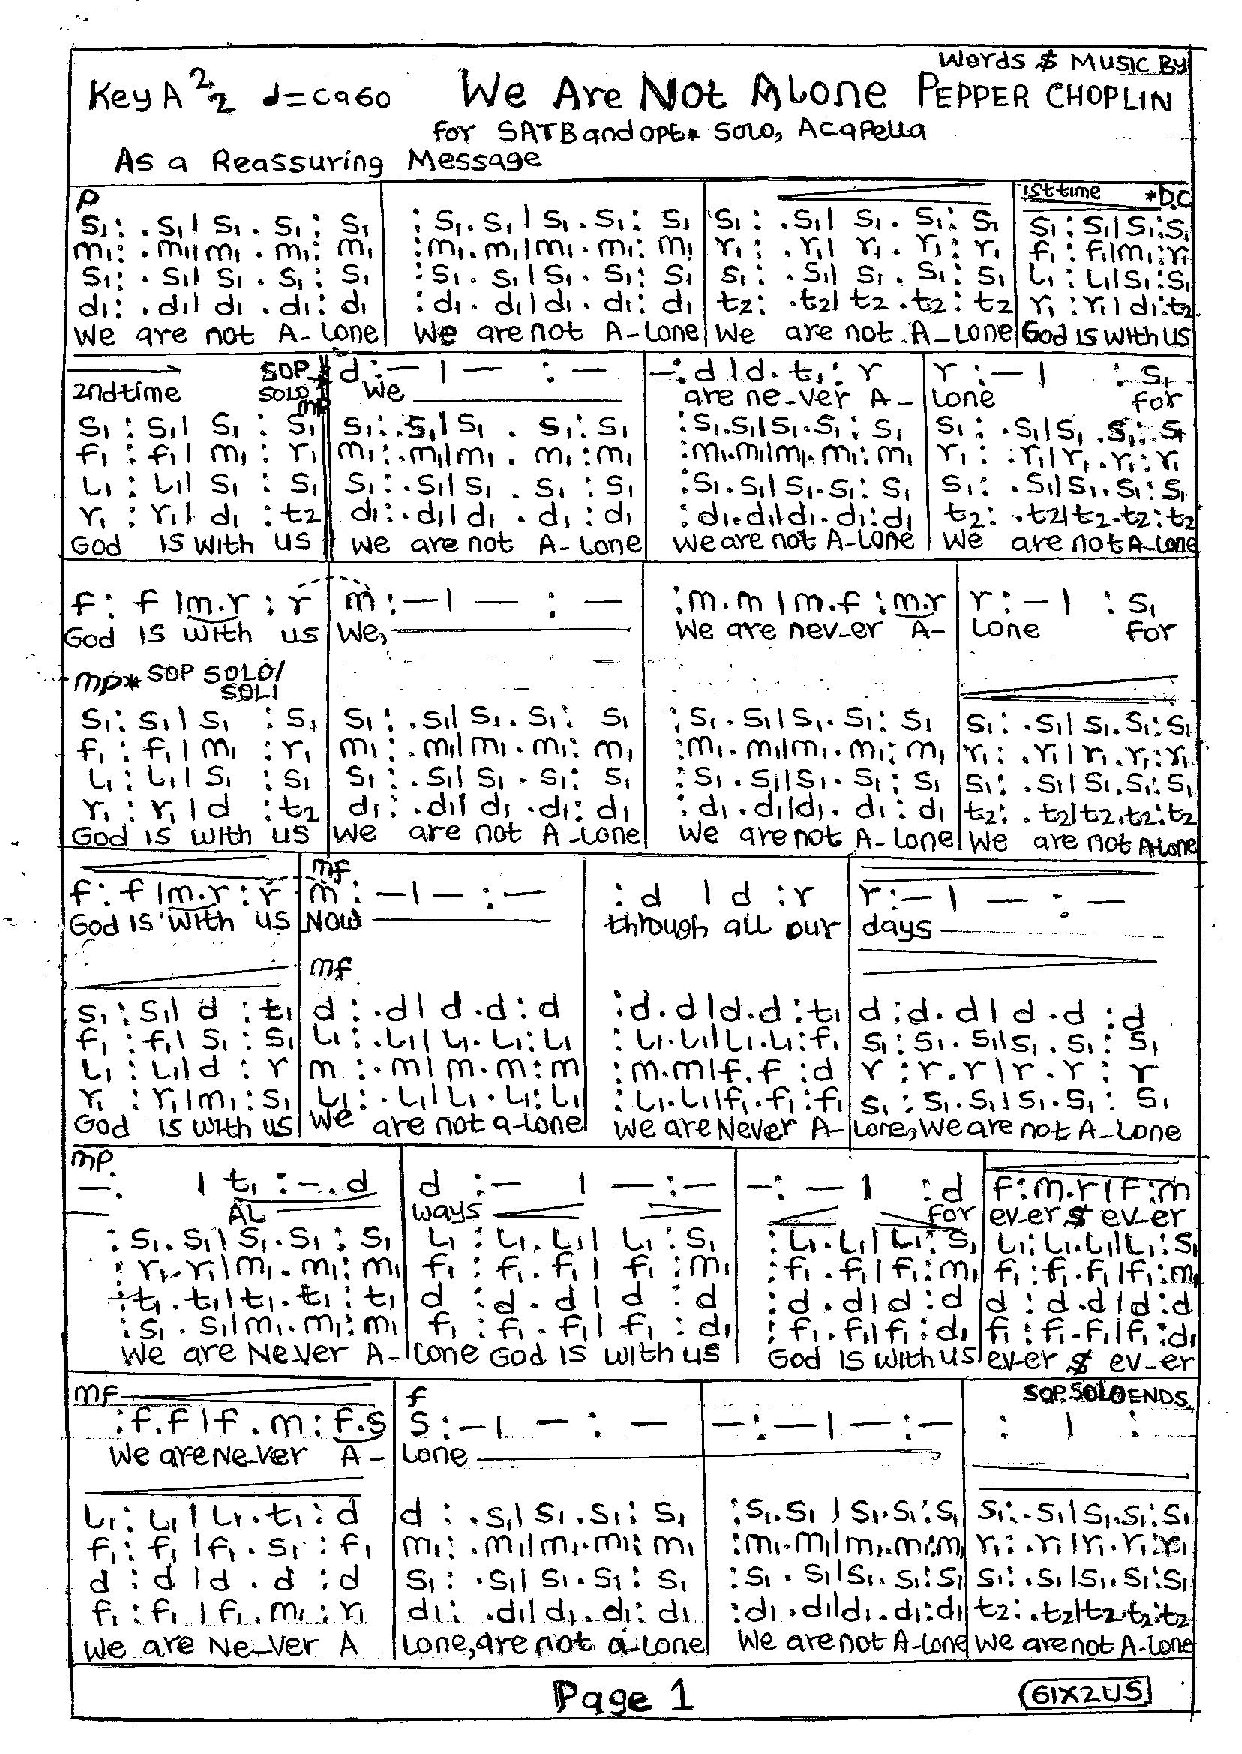 Words & Music By
Key A 2/2 d=ca60 We Are Not Alone PEPPER CHOPLIN
for SATB and opt* Solo, Acapella
As a Reassuring Message
p 1st time *D.C
s₁: .s₁| s₁ . s₁: s₁ : s₁.s₁ | s₁.s₁: s₁ s₁: .s₁| s₁ . s₁: s₁ s₁: s₁| s₁: s₁
m₁: .m₁| m₁ . m₁: m₁ : m₁.m₁| m₁.m₁: m₁ r₁: .r₁| r₁ . r₁: r₁ f₁: f₁| m₁: r₁
s₁: .s₁| s₁ . s₁: s₁ : s₁.s₁| s₁.s₁: s₁ s₁: .s₁| s₁ . s₁: s₁ L₁: L₁| s₁: s₁
d₁: .d₁| d₁ . d₁: d₁ : d₁.d₁| d₁.d₁: d₁ t₂: .t₂| t₂ . t₂: t₂ r₁: r₁| d₁: t₂
We are not A-Lone We are not A-Lone We are not A-Lone God is with us
2nd time SOP SOLO mp d :— | — : — —: d | d . t₁: r r :— | : s₁
We are ne-ver A- Lone for
s₁ : s₁| s₁ : s₁ s₁: .s₁| s₁ . s₁: s₁ : s₁.s₁| s₁.s₁: s₁ s₁: .s₁| s₁ .s₁: s₁
f₁ : f₁| m₁ : r₁ m₁: .m₁| m₁ . m₁: m₁ : m₁.m₁| m₁.m₁: m₁ r₁: .r₁| r₁.r₁: r₁
L₁ : L₁| s₁ : s₁ s₁: .s₁| s₁ . s₁ : s₁ : s₁.s₁| s₁.s₁: s₁ s₁: .s₁| s₁.s₁: s₁
r₁ : r₁| d₁ : t₂ d₁: .d₁| d₁ . d₁ : d₁ : d₁.d₁| d₁.d₁: d₁ t₂: .t₂| t₂.t₂: t₂
God is with us We are not A-Lone We are not A-Lone We are not A-Lone
f : f | m.r : r m :— | — : — : m.m | m.f : m.r r :— | : s₁
God is with us We, We are nev-er A- Lone for
mp* SOP SOLO/
SOLI
s₁: s₁| s₁ : s₁ s₁: .s₁| s₁. s₁: s₁ : s₁.s₁| s₁.s₁: s₁ s₁: .s₁| s₁.s₁: s₁
f₁ : f₁| m₁ : r₁ m₁: .m₁| m₁.m₁: m₁ : m₁.m₁| m₁.m₁: m₁ r₁: .r₁| r₁.r₁: r₁
L₁ : L₁| s₁ : s₁ s₁: .s₁| s₁ . s₁: s₁ : s₁.s₁| s₁.s₁: s₁ s₁: .s₁| s₁.s₁: s₁
r₁ : r₁| d : t₂ d₁: .d₁| d₁ .d₁: d₁ : d₁.d₁| d₁. d₁: d₁ t₂: .t₂| t₂.t₂: t₂
God is with us We are not A-Lone We are not A-Lone We are not A-Lone
mf
f : f | m.r : r m : — | — : — : d | d : r r :— | — : —
God is with us Now through all our days
mf
s₁: s₁| d : t₁ d : .d | d .d : d : d.d | d.d : t₁ d : d.d | d .d : d
f₁ : f₁| s₁ : s₁ L₁: .L₁| L₁.L₁: L₁ : L₁.L₁| L₁.L₁: f₁ s₁: s₁.s₁| s₁.s₁: s₁
L₁ : L₁| d : r m : .m | m.m : m : m.m | f.f : d r : r.r | r.r : r
r₁ : r₁| m₁: s₁ L₁: .L₁| L₁.L₁: L₁ : L₁.L₁| f₁.f₁: f₁ s₁: s₁.s₁| s₁.s₁: s₁
God is with us We are not a-lone We are Never A- Lone, We are not A-Lone
mp
—: | t₁ : —.d d :— | — : — —: — | : d f : m.r | f : m
AL ways for ev-er & ev-er
: s₁.s₁| s₁.s₁: s₁ L₁ : L₁.L₁| L₁ : s₁ : L₁.L₁| L₁: s₁ L₁: L₁.L₁| L₁: s₁
: r₁.r₁| m₁.m₁: m₁ f₁ : f₁.f₁| f₁ : m₁ : f₁.f₁| f₁: m₁ f₁: f₁.f₁| f₁: m₁
: t₁.t₁| t₁.t₁: t₁ d : d.d | d : d : d.d | d : d d : d.d | d : d
: s₁.s₁| m₁.m₁: m₁ f₁ : f₁.f₁| f₁ : d₁ : f₁.f₁| f₁: d₁ f₁: f₁.f₁| f₁: d₁
We are Never A- Lone God is with us God is with us ever & ev-er
mf f SOP. SOLO ENDS.
: f.f | f . m : f.s s :— | — : — —: — | — : — : | :
We are Ne-ver A- Lone
L₁: L₁| L₁.t₁: d d : .s₁| s₁.s₁: s₁ : s₁.s₁| s₁.s₁: s₁ s₁: .s₁| s₁.s₁: s₁
f₁: f₁| f₁. s₁: f₁ m₁: .m₁| m₁.m₁: m₁ : m₁.m₁| m₁.m₁: m₁ r₁: .r₁| r₁.r₁: r₁
d : d | d . d : d s₁: .s₁| s₁.s₁: s₁ : s₁.s₁| s₁.s₁: s₁ s₁: .s₁| s₁.s₁: s₁
f₁ : f₁| f₁. m₁: r₁ d₁: .d₁| d₁.d₁: d₁ : d₁.d₁| d₁.d₁: d₁ t₂: .t₂| t₂.t₂: t₂
We are Ne-Ver A Lone, are not a-lone We are not A-Lone We are not A-Lone
Page 1 61X2US